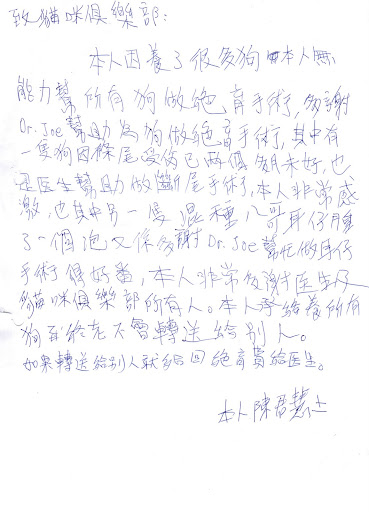 致貓咪俱樂部:
本人因養了很多狗 本人無
能力幫所有狗做絕育手術,多謝
Dr. Joe 幫助為狗做絕育手術,其中有
一隻狗因條尾受伤已两個多月未好,也
是医生幫助做斷尾手術,本人非常感
激,也其中另一隻混種八哥耳仔腫
了一個泡又係多謝Dr. Joe幫忙做耳仔
手術得好番,本人非常多謝医生及
貓咪俱樂部所有人。本人承给養所有
狗至終老不會轉送給別人。
如果轉送給別人就給回絕育費給医生。
本人陳君慧上